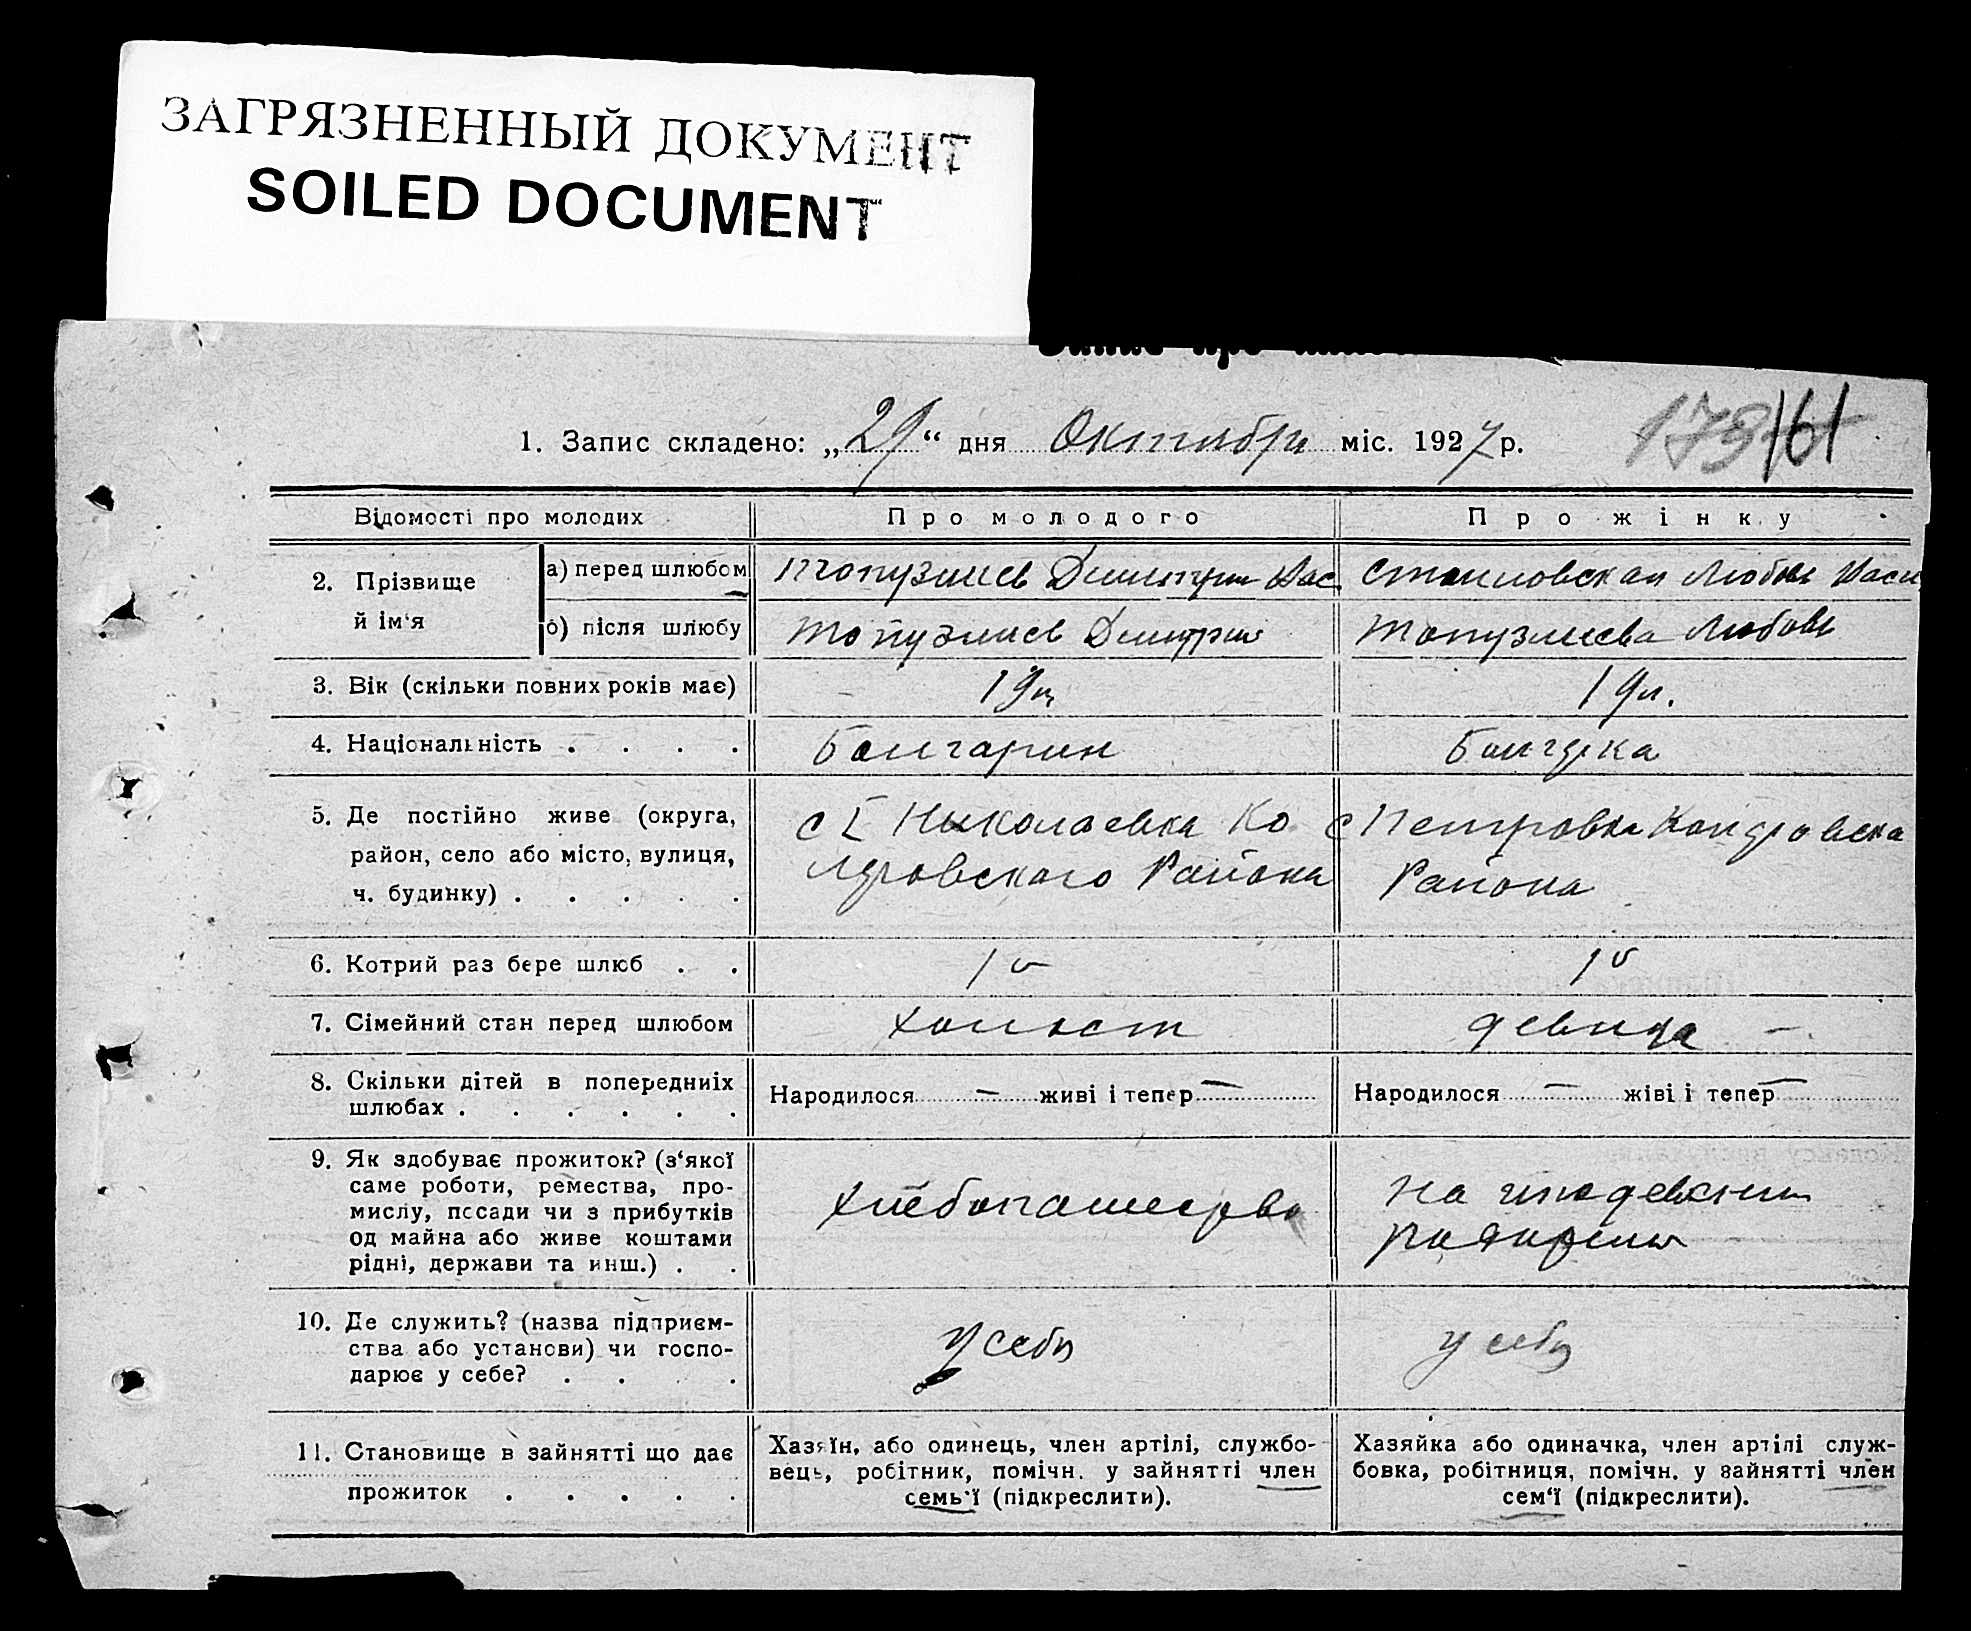 ЗАГРЯЗНЕННЫЙ ДОКУМЕНТ
SOILED DOCUMENT
1. Запис складено: „29“ дня Октября міс. 1927 р.
161
Відомості про молодих
Про молодого
Про жінку
2. Прізвище й ім‘я
а) перед шлюбом
Топузлиев Димитри Вас.
Стоиловская Любовь Васи
б) після шлюбу
Топузлиев Димитрий
Топузлиева Любовь
3. Вік (скільки повних років має)
19 л.
19 л.
4. Національність . . . .
Болгарин
Болгарка
5. Де постійно живе (округа,
район, село або місто, вулиця,
ч. будинку) . . . . .
с I Николаевка Ко
ларовского Района
с Петровка Коларовска
Района
6. Котрий раз бере шлюб . .
1й
1й
7. Сімейний стан перед шлюбом
холост
девица –
8. Скільки дітей в попередниіх
шлюбах . . . . . .
Народилося – живі і тепер –
Народилося – жіві і тепер –
9. Як здобуває прожиток? (з‘якої
саме роботи, ремества, про-
мислу, посади чи з прибутків
од майна або живе коштами
рідні, держави та инш.) . .
Хлебопашество
на иждевении
родителей
10. Де служить? (назва підприєм-
ства або установи) чи госпо-
дарює у себе? . . . .
у себя
у себя
11. Становище в зайнятті що дає
прожиток . . . . .
Хазяїн, або одинець, член артілі, службо-
вець, робітник, помічн. у зайнятті член
семь'ї (підкреслити).
Хазяйка або одиначка, член артілі служ-
бовка, робітниця, помічн. у зайнятті член
сем‘ї (підкреслити).